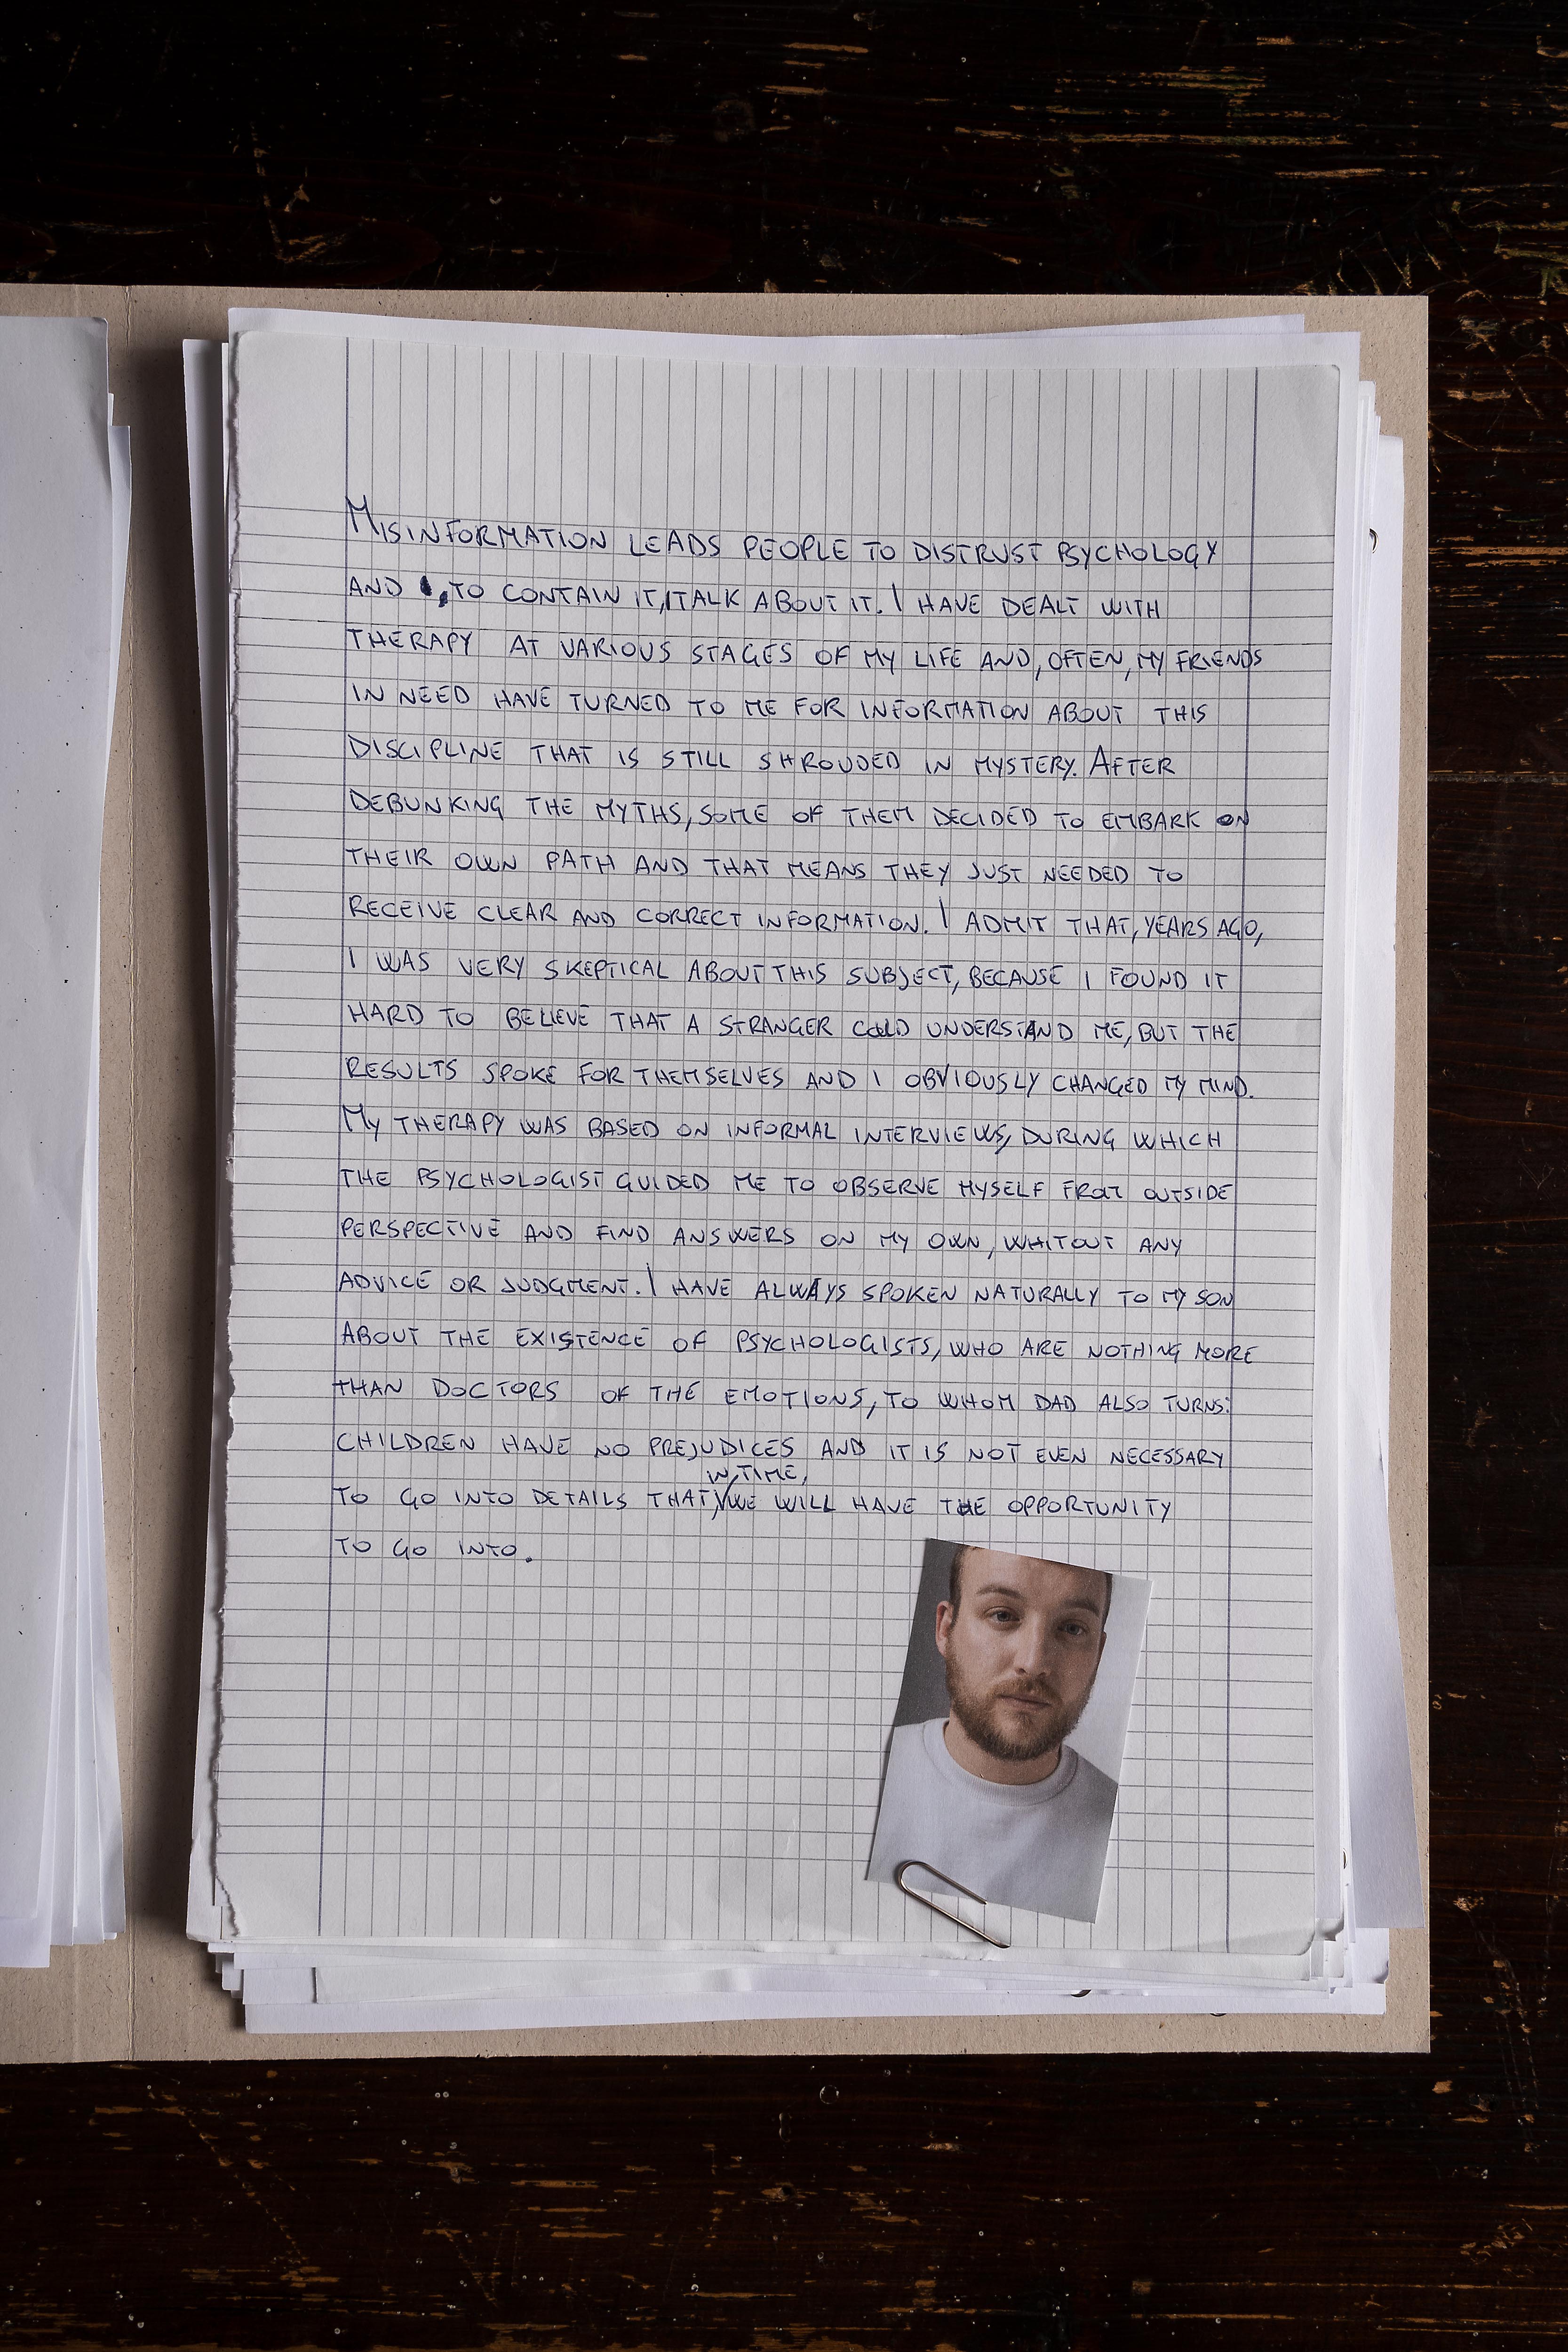 MISINFORMATION LEADS PEOPLE TO DISTRUST PSYCHOLOGY
AND , TO CONTAIN IT, I TALK ABOUT IT. I HAVE DEALT WITH
THERAPY AT VARIOUS STAGES OF MY LIFE AND, OFTEN, MY FRIENDS
IN NEED HAVE TURNED TO ME FOR INFORMATION ABOUT THIS
DISCIPLINE THAT IS STILL SHROUDED IN MYSTERY. AFTER
DEBUNKING THE MYTHS, SOME OF THEM DECIDED TO EMBARK ON
THEIR OWN PATH AND THAT MEANS THEY JUST NEEDED TO
RECEIVE CLEAR AND CORRECT INFORMATION. I ADMIT THAT, YEARS AGO,
I WAS VERY SKEPTICAL ABOUT THIS SUBJECT, BECAUSE I FOUND IT
HARD TO BELIEVE THAT A STRANGER COULD UNDERSTAND ME, BUT THE
RESULTS SPOKE FOR THEMSELVES AND I OBVIOUSLY CHANGED MY MIND.
MY THERAPY WAS BASED ON INFORMAL INTERVIEWS, DURING WHICH
THE PSYCHOLOGIST GUIDED ME TO OBSERVE MYSELF FROM OUTSIDE
PERSPECTIVE AND FIND ANSWERS ON MY OWN, WHITOUT ANY
ADVICE OR JUDGMENT. I HAVE ALWAYS SPOKEN NATURALLY TO MY SON
ABOUT THE EXISTENCE OF PSYCHOLOGISTS, WHO ARE NOTHING MORE
THAN DOCTORS OF THE EMOTIONS, TO WHOM DAD ALSO TURNS:
CHILDREN HAVE NO PREJUDICES AND IT IS NOT EVEN NECESSARY
IN TIME,
TO GO INTO DETAILS THAT, WE WILL HAVE THE OPPORTUNITY
TO GO INTO.